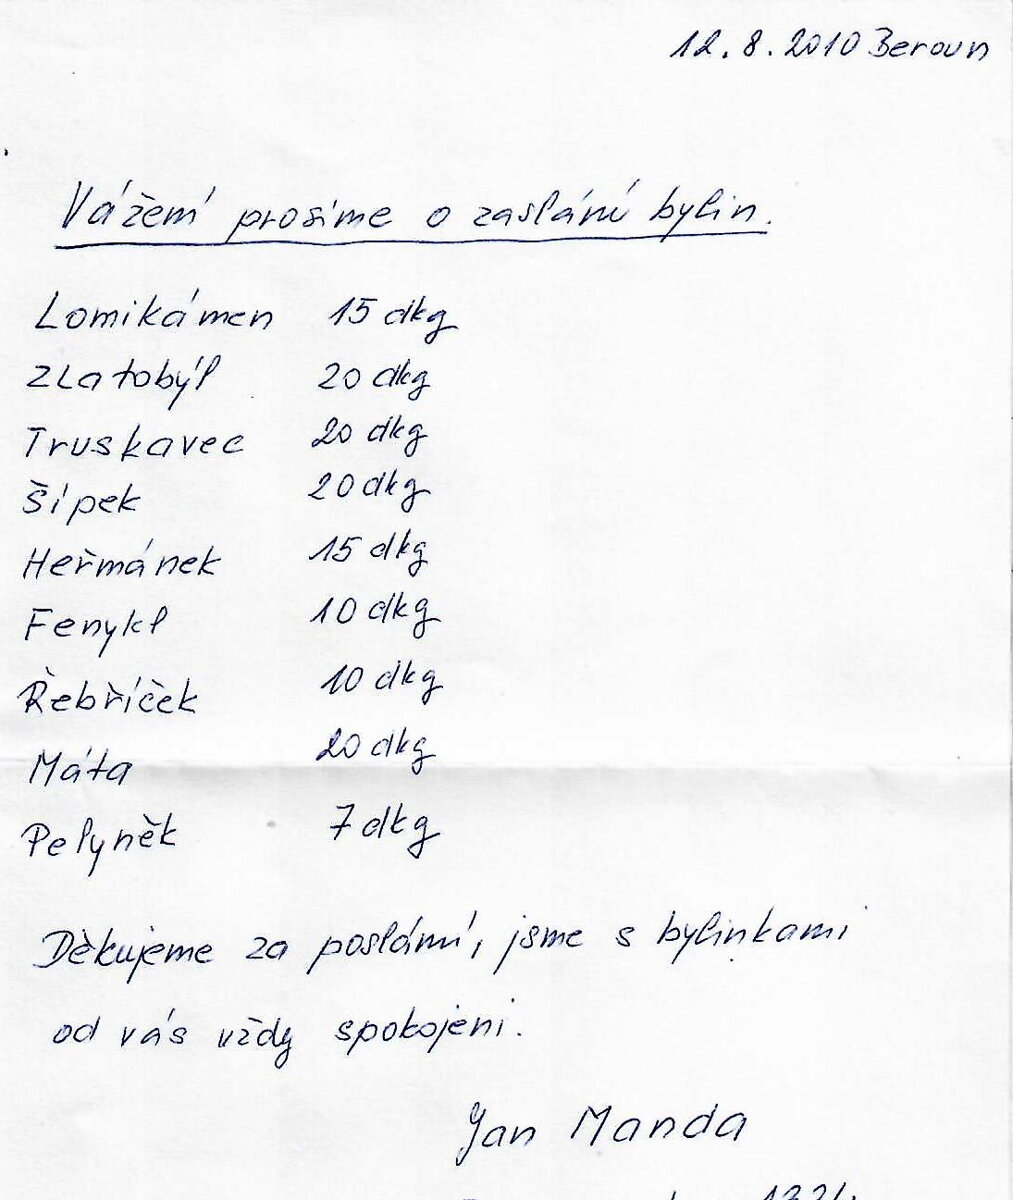 12.8.2010 Beroun
Vážení prosíme o zaslání bylin.
Lomikámen 15 dkg
Zlatobýl 20 dkg
Truskavec 20 dkg
Šípek 20 dkg
Heřmánek 15 dkg
Fenykl 10 dkg
Řebříček 10 dkg
Máta 20 dkg
Pelyněk 7 dkg
Děkujeme za poslání, jsme s bylinkami
od vás vždy spokojeni.
Jan Manda